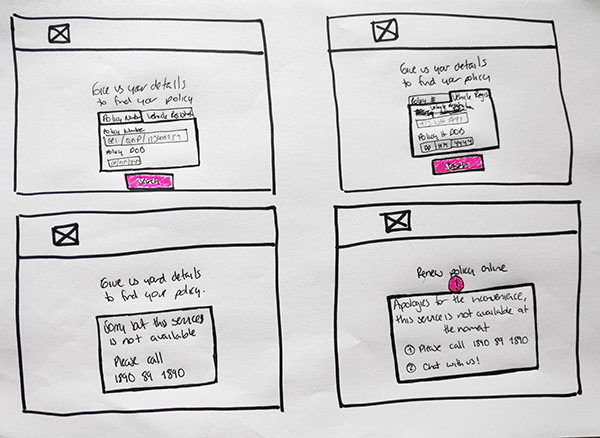 Give us your details
to find your policy
Policy Number Vehicle Registration
Policy Number
Policy DOB
Search
Give us your details
to find your policy
Policy # Vehicle Regist
Policy H DOB
Search
Give us your details
to find your policy.
Sorry but this service
is not available
Please call
1890 89 1890
Renew policy online
!
Apologies for the inconvenience,
this service is not available at
the moment
1 Please call 1890 89 1890
2 Chat with us!